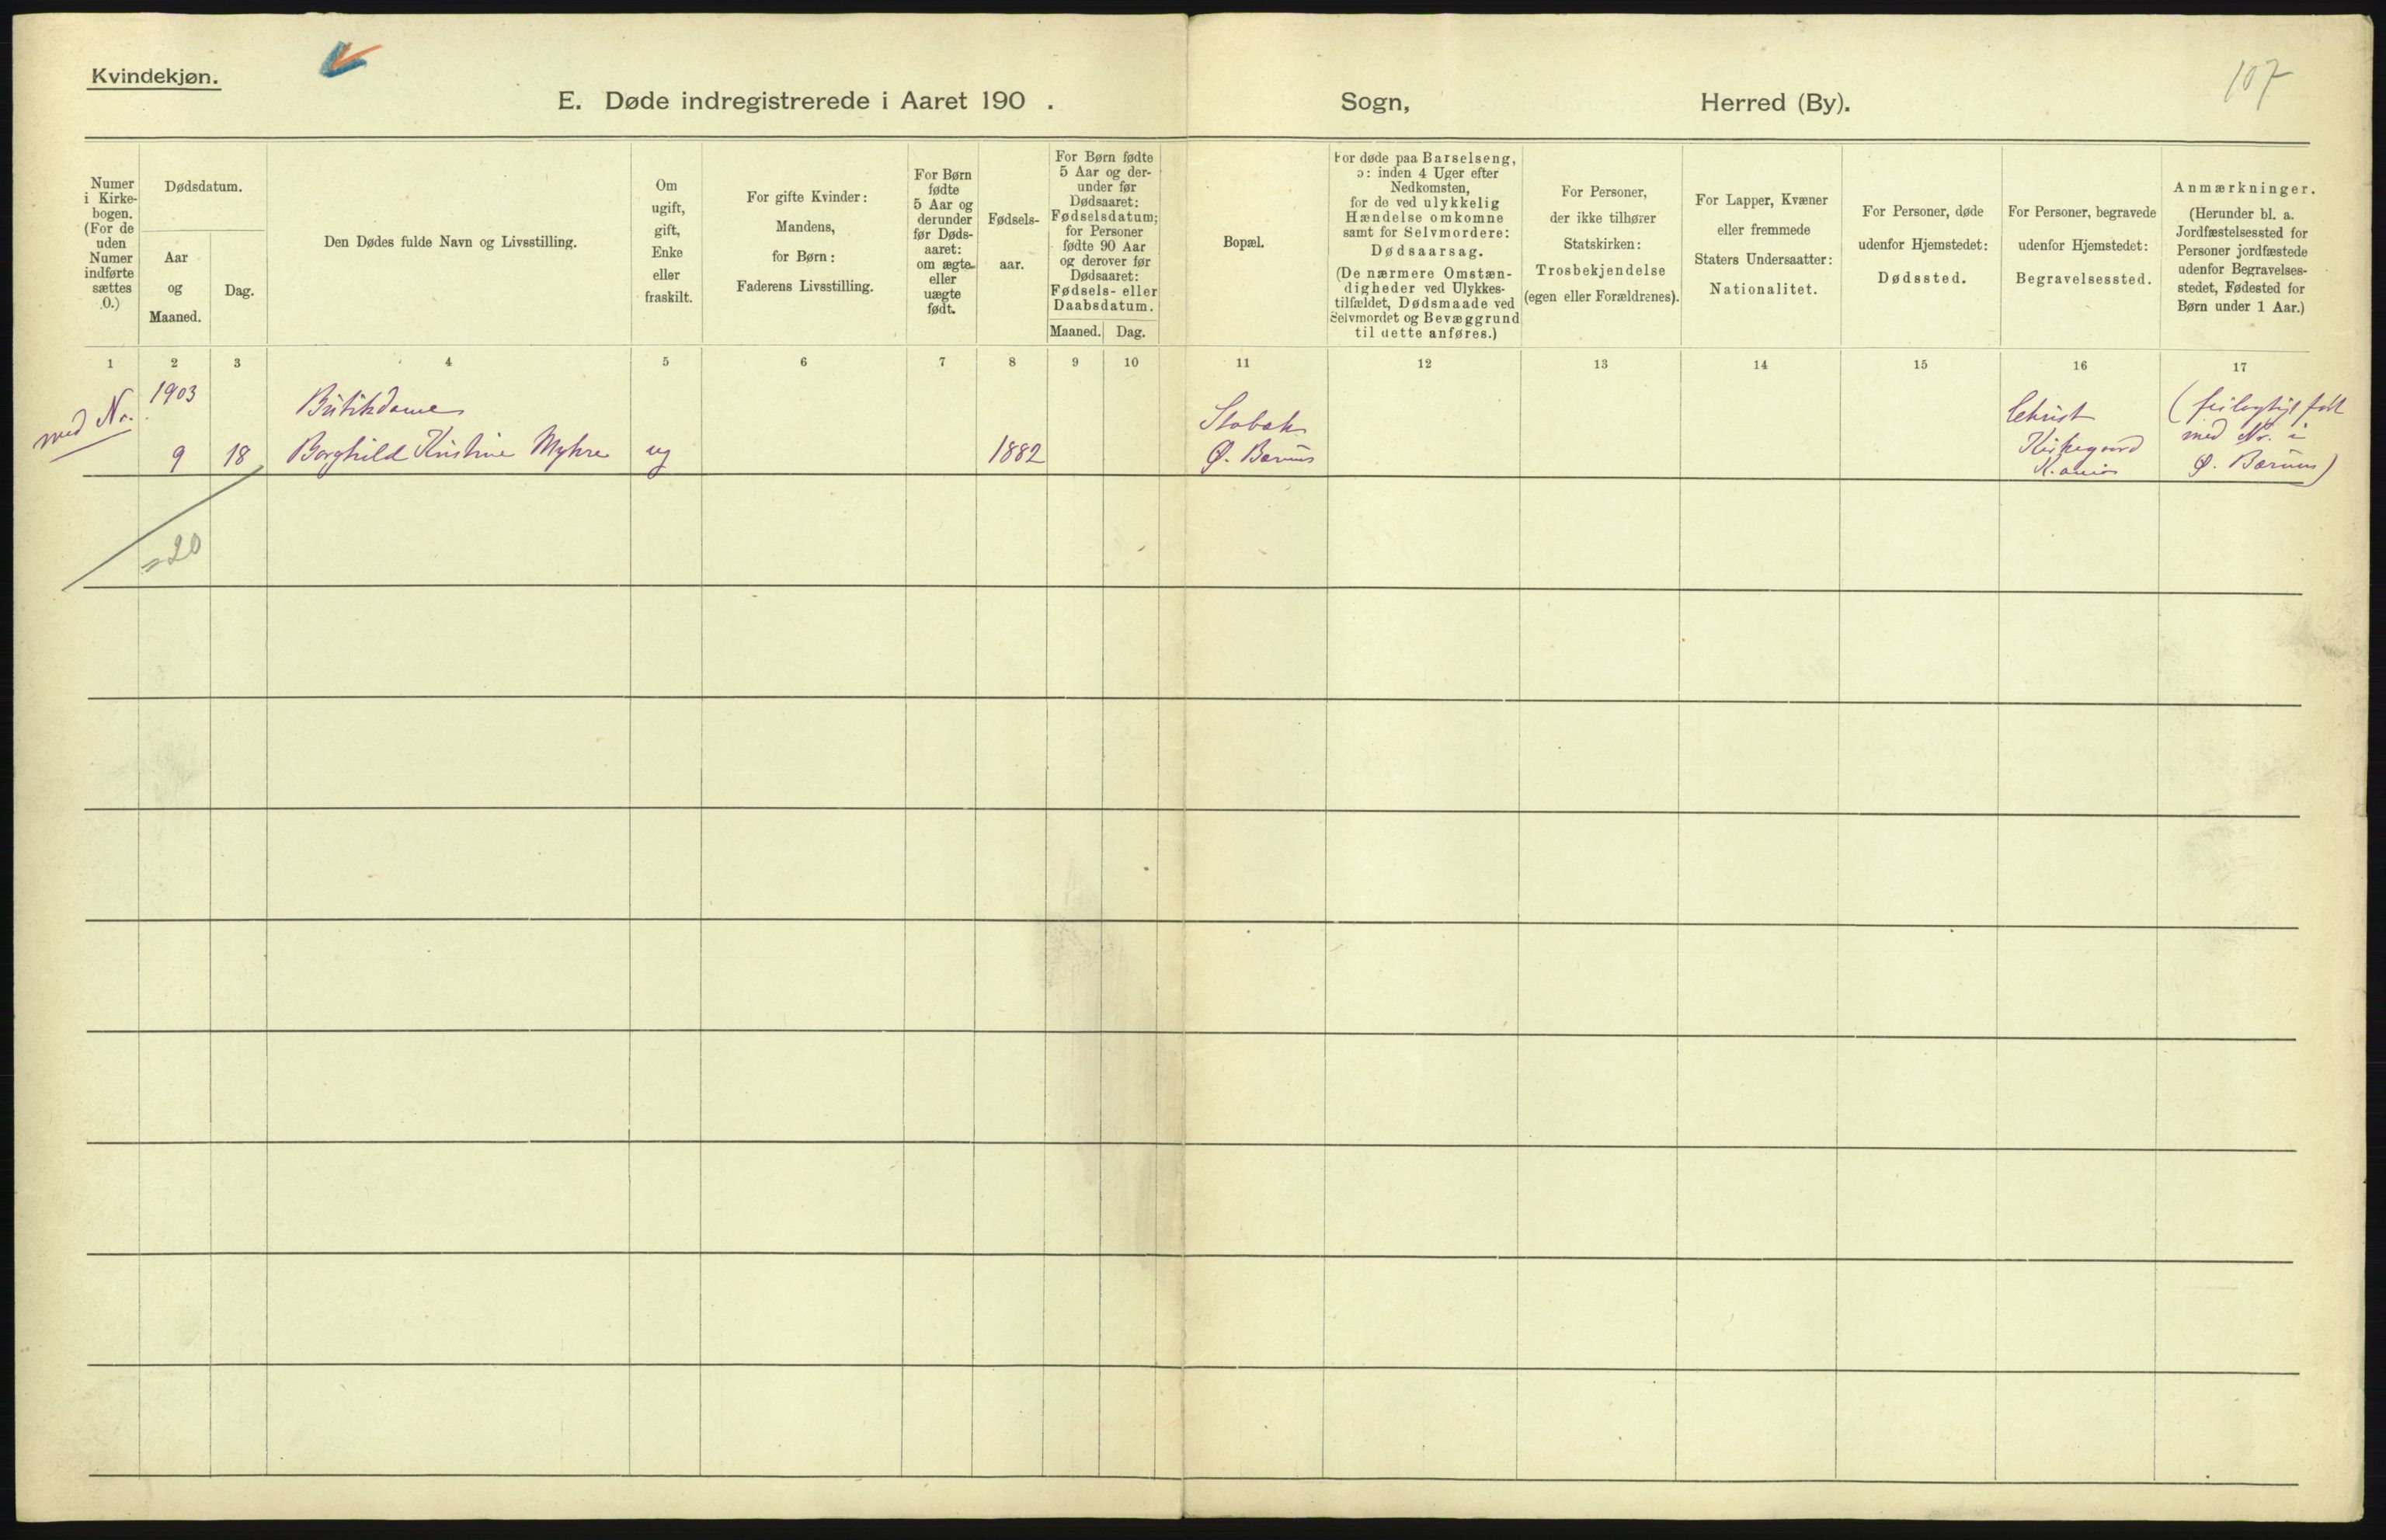 Kvindekjøn.
107
E. Døde indregistrerede i Aaret 190 . Sogn, Herred (By).
Numer
i Kirke-
bogen.
(For de
uden
Numer
indførte
sættes
0.)
Dødsdatum.
Aar
og
Maaned.
Dag.
Den Dødes fulde Navn og Livsstilling.
Om
ugift,
gift,
Enke
eller
fraskilt.
For gifte Kvinder:
Mandens,
for Børn:
Faderens Livsstilling.
For Børn
fødte
5 Aar og
derunder
før Døds-
aaret:
om ægte
eller
uægte
født.
Fødsels-
aar.
For Børn fødte
5 Aar og der-
under før
Dødsaaret:
Fødselsdatum;
for Personer
fødte 90 Aar
og derover før
Dødsaaret:
Fødsels- eller
Daabsdatum.
Maaned. Dag.
Bopæl.
For døde paa Barselseng,
ɔ: inden 4 Uger efter
Nedkomsten,
for de ved ulykkelig
Hændelse omkomne
samt for Selvmordere:
Dødsaarsag.
(De nærmere Omstæn-
digheder ved Ulykkes-
tilfældet, Dødsmaade ved
Selvmordet og Bevæggrund
til dette anføres.)
For Personer,
der ikke tilhører
Statskirken:
Trosbekjendelse
(egen eller Forældrenes).
For Lapper, Kvæner
eller fremmede
Staters Undersaatter:
Nationalitet.
For Personer, døde
udenfor Hjemstedet:
Dødssted.
For Personer, begravede
udenfor Hjemstedet:
Begravelsessted.
Anmærkninger.
(Herunder bl. a.
Jordfæstelsessted for
Personer jordfæstede
udenfor Begravelses-
stedet, Fødested for
Børn under 1 Aar.)
1 2 3 4 5 6 7 8 9 10 11 12 13 14 15 16 17
med Nr.
1903
9 18
Butikdame
Borghild Kristine Myhre
ug
1882
Stabæk
Ø. Bærum
Christ
Kirkegaard
K.ania
(feilagtigt ført
med Nr. i
Ø. Bærum)
20